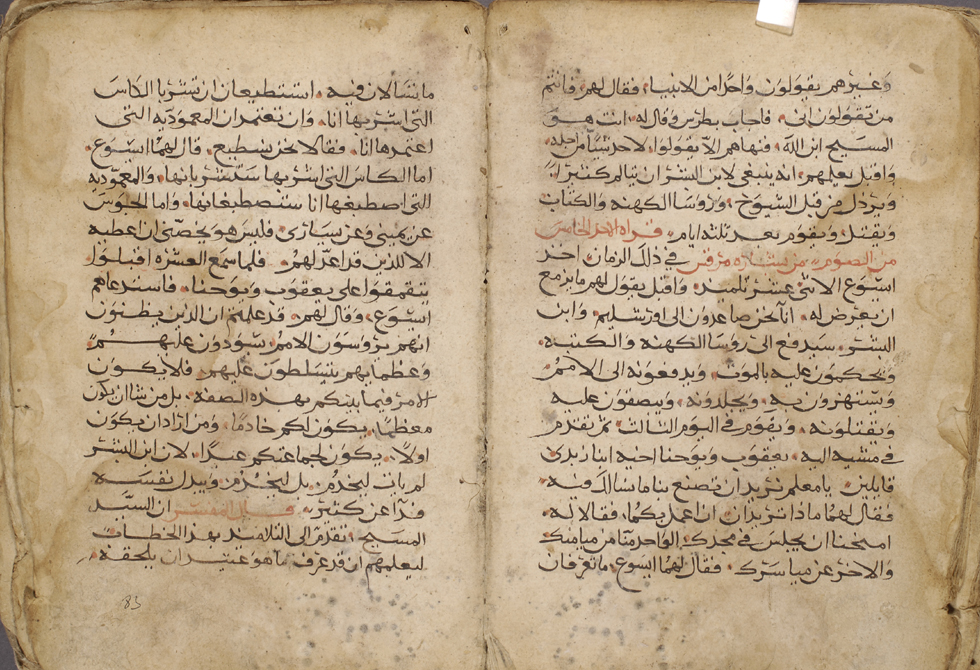 وغيرهم يقولون واحدا من الانبيا، فقال لهم، فانتم
من تقولون اني، فاجاب بطرس وقال له، انت هو
المسيح ابن الله، فنهاهم الا يقولوا لاحد شيا من اجله،
واقبل يعلمهم، انه ينبغي لابن البشر ان يتالم كثيرا
ويرذل من قبل الشيوخ، وروسا الكهنه والكتاب
ويقتل، ويقوم بعد ثلثه ايام، قراه الاحد الخامس
من الصوم من بشاره مرقس في ذلك الزمان اخذ
ايسوع الاثني عشر تلميذ، واقبل يقول لهم ما يزمع
ان يعرض له، اننا نحن صاعدون الى اورشليم، وابن
البشر، سيدفع الى روسا الكهنه والكتبه،
ويحكمون عليه بالموت، ويدفعونه الى الامم
ويستهزون به، ويجلدونه، ويبصقون عليه
ويقتلونه، ويقوم في اليوم الثالث، ثم تقدم
في مشيه اليه، يعقوب ويوحنا اخيه ابنا زبدى
قايلين، يا معلم نريد ان تصنع بنا ما سالك فيه،
فقال لهما ماذا تريدان ان اعمل بكما، فقالا له،
امنحنا ان نجلس في مجدك، الواحد منا من ميامنك
والاخر عن مياسرك، فقال لهما ايسوع، ما تعرفان
ما تسالان فيه، استطيعان ان تشربا الكاس
التي اشربها انا، وان تعتمدان المعموديه التي
اعتمدها انا، فقالا نحن نستطيع، قال لهما ايسوع،
اما الكاس التي اشربها ستشربانها، والمعموديه
التي اصطبغها انا ستصطبغانها، واما الجلوس
عن يميني وعن يساري، فليس هو يخصني ان اعطيه
الا للذين قد اعد لهم، فلما سمع العشره اقبلوا
يتقمقموا على يعقوب ويوحنا، فاستدعاهم
ايسوع، وقال لهم، قد علمتم ان الذين يظنون
انهم يروسون الامم، يسودون عليهم،
وعظماهم يتسلطون عليهم، فلا يكون
الامر فيما بينكم بهذه الصفه، بل من شا ان يكون
معظما، يكون لكم خادما، ومن اراد ان يكون
اولا، يكون لجماعتكم عبدا، لان ابن البشر
لم يات ليخدم، بل ليخدم، ويبدل نفسه
فدا عن كثير، ان السيد
المسيح، تقدم الى التلاميذ بعد الخطاب
ليعلمهم ان قد عرف ما هو عتيد ان يلحقه،
83